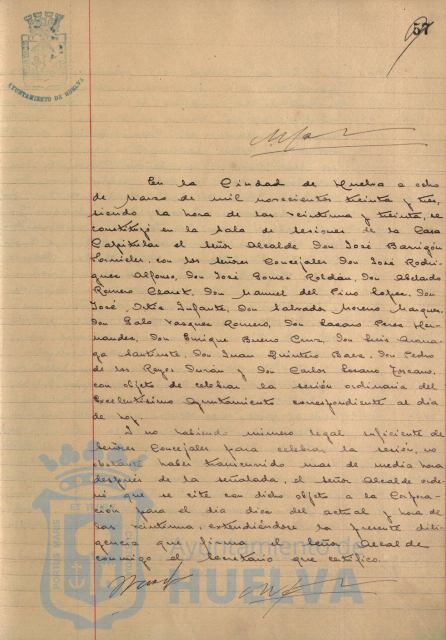 57
AYUNTAMIENTO DE HUELVA
En la Ciudad de Huelva a ocho
de Marzo de mil novecientos treinta y tres,
siendo la hora de las veintiuna y treinta, se
constituyó en la Sala de sesiones de la Casa
Capitular el señor Alcalde Don José Barrigón
Fornieles, con los señores Concejales Don José Rodri-
guez Alfonso, Don José Gomez Roldán, Don Abelardo
Romero Claret, Don Manuel del Pino Lopez, Don
José Ortiz Infante, Don Salvador Moreno Marquez,
Don Galo Vazquez Romero, Don Lazaro Perez Her-
nandez, Don Enrique Bueno Cruz, Don Luis
Don Juan Quintero Baez, Don Pedro
de los Reyes Durán y Don Carlos Lozano Toscano,
con objeto de celebrar la sesión ordinaria del
Excelentísimo Ayuntamiento correspondiente al día
de hoy.
Y no habiendo número legal suficiente de
señores Concejales para celebrar la sesión, no
obstante haber transcurrido mas de media hora
después de la señalada, el señor Alcalde orde-
nó que se cite con dicho objeto a la Corpora-
ción para el día diez del actual y hora de
las veintiuna, extendiéndose la presente dili-
gencia que firma el señor Alcalde
conmigo el Secretario que certifico.
Ayuntamiento de
HUELVA